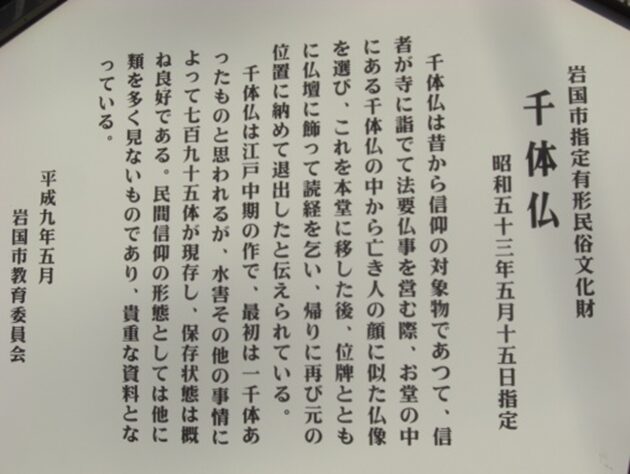 岩国市指定有形民俗文化財
千体仏
昭和五十三年五月十五日指定
千体仏は昔から信仰の対象物であつて、信
者が寺に詣でて法要仏事を営む際、お堂の中
にある千体仏の中から亡き人の顔に似た仏像
を選び、これを本堂に移した後、位牌ととも
に仏壇に飾って読経を乞い、帰りに再び元の
位置に納めて退出したと伝えられている。
千体仏は江戸中期の作で、最初は一千体あ
ったものと思われるが、水害その他の事情に
よって七百九十五体が現存し、保存状態は概
ね良好である。民間信仰の形態としては他に
類を多く見ないものであり、貴重な資料とな
っている。
平成九年五月
岩国市教育委員会